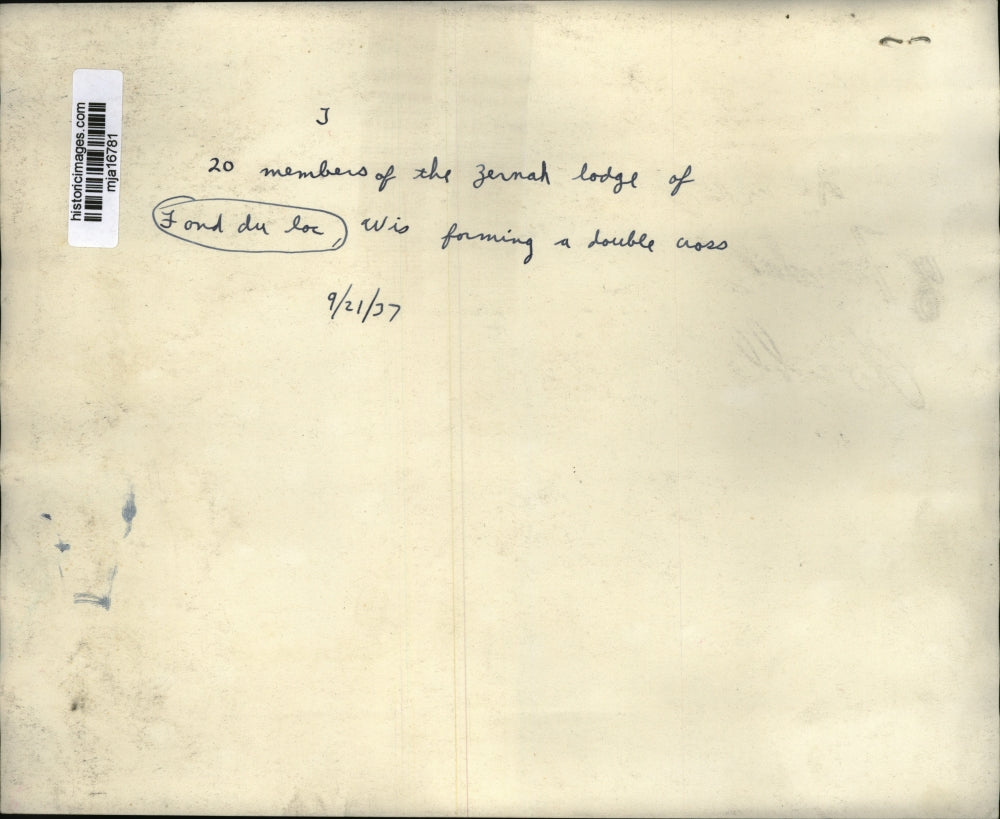 historicimages.com
mja16781
J
20 members of the Zernah lodge of
Fond du loc, Wis forming a double cross
9/21/37